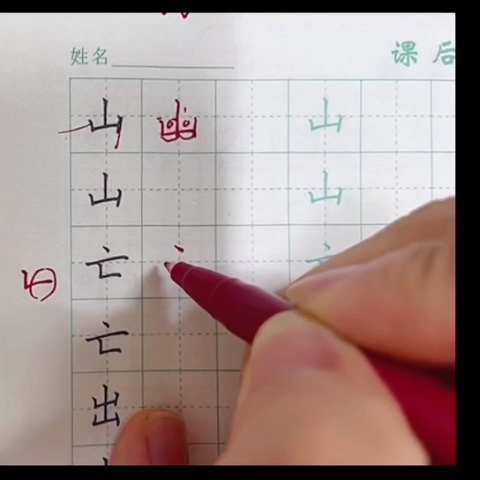 姓名 课后
山 山
山 山
亡 亡
亡
出